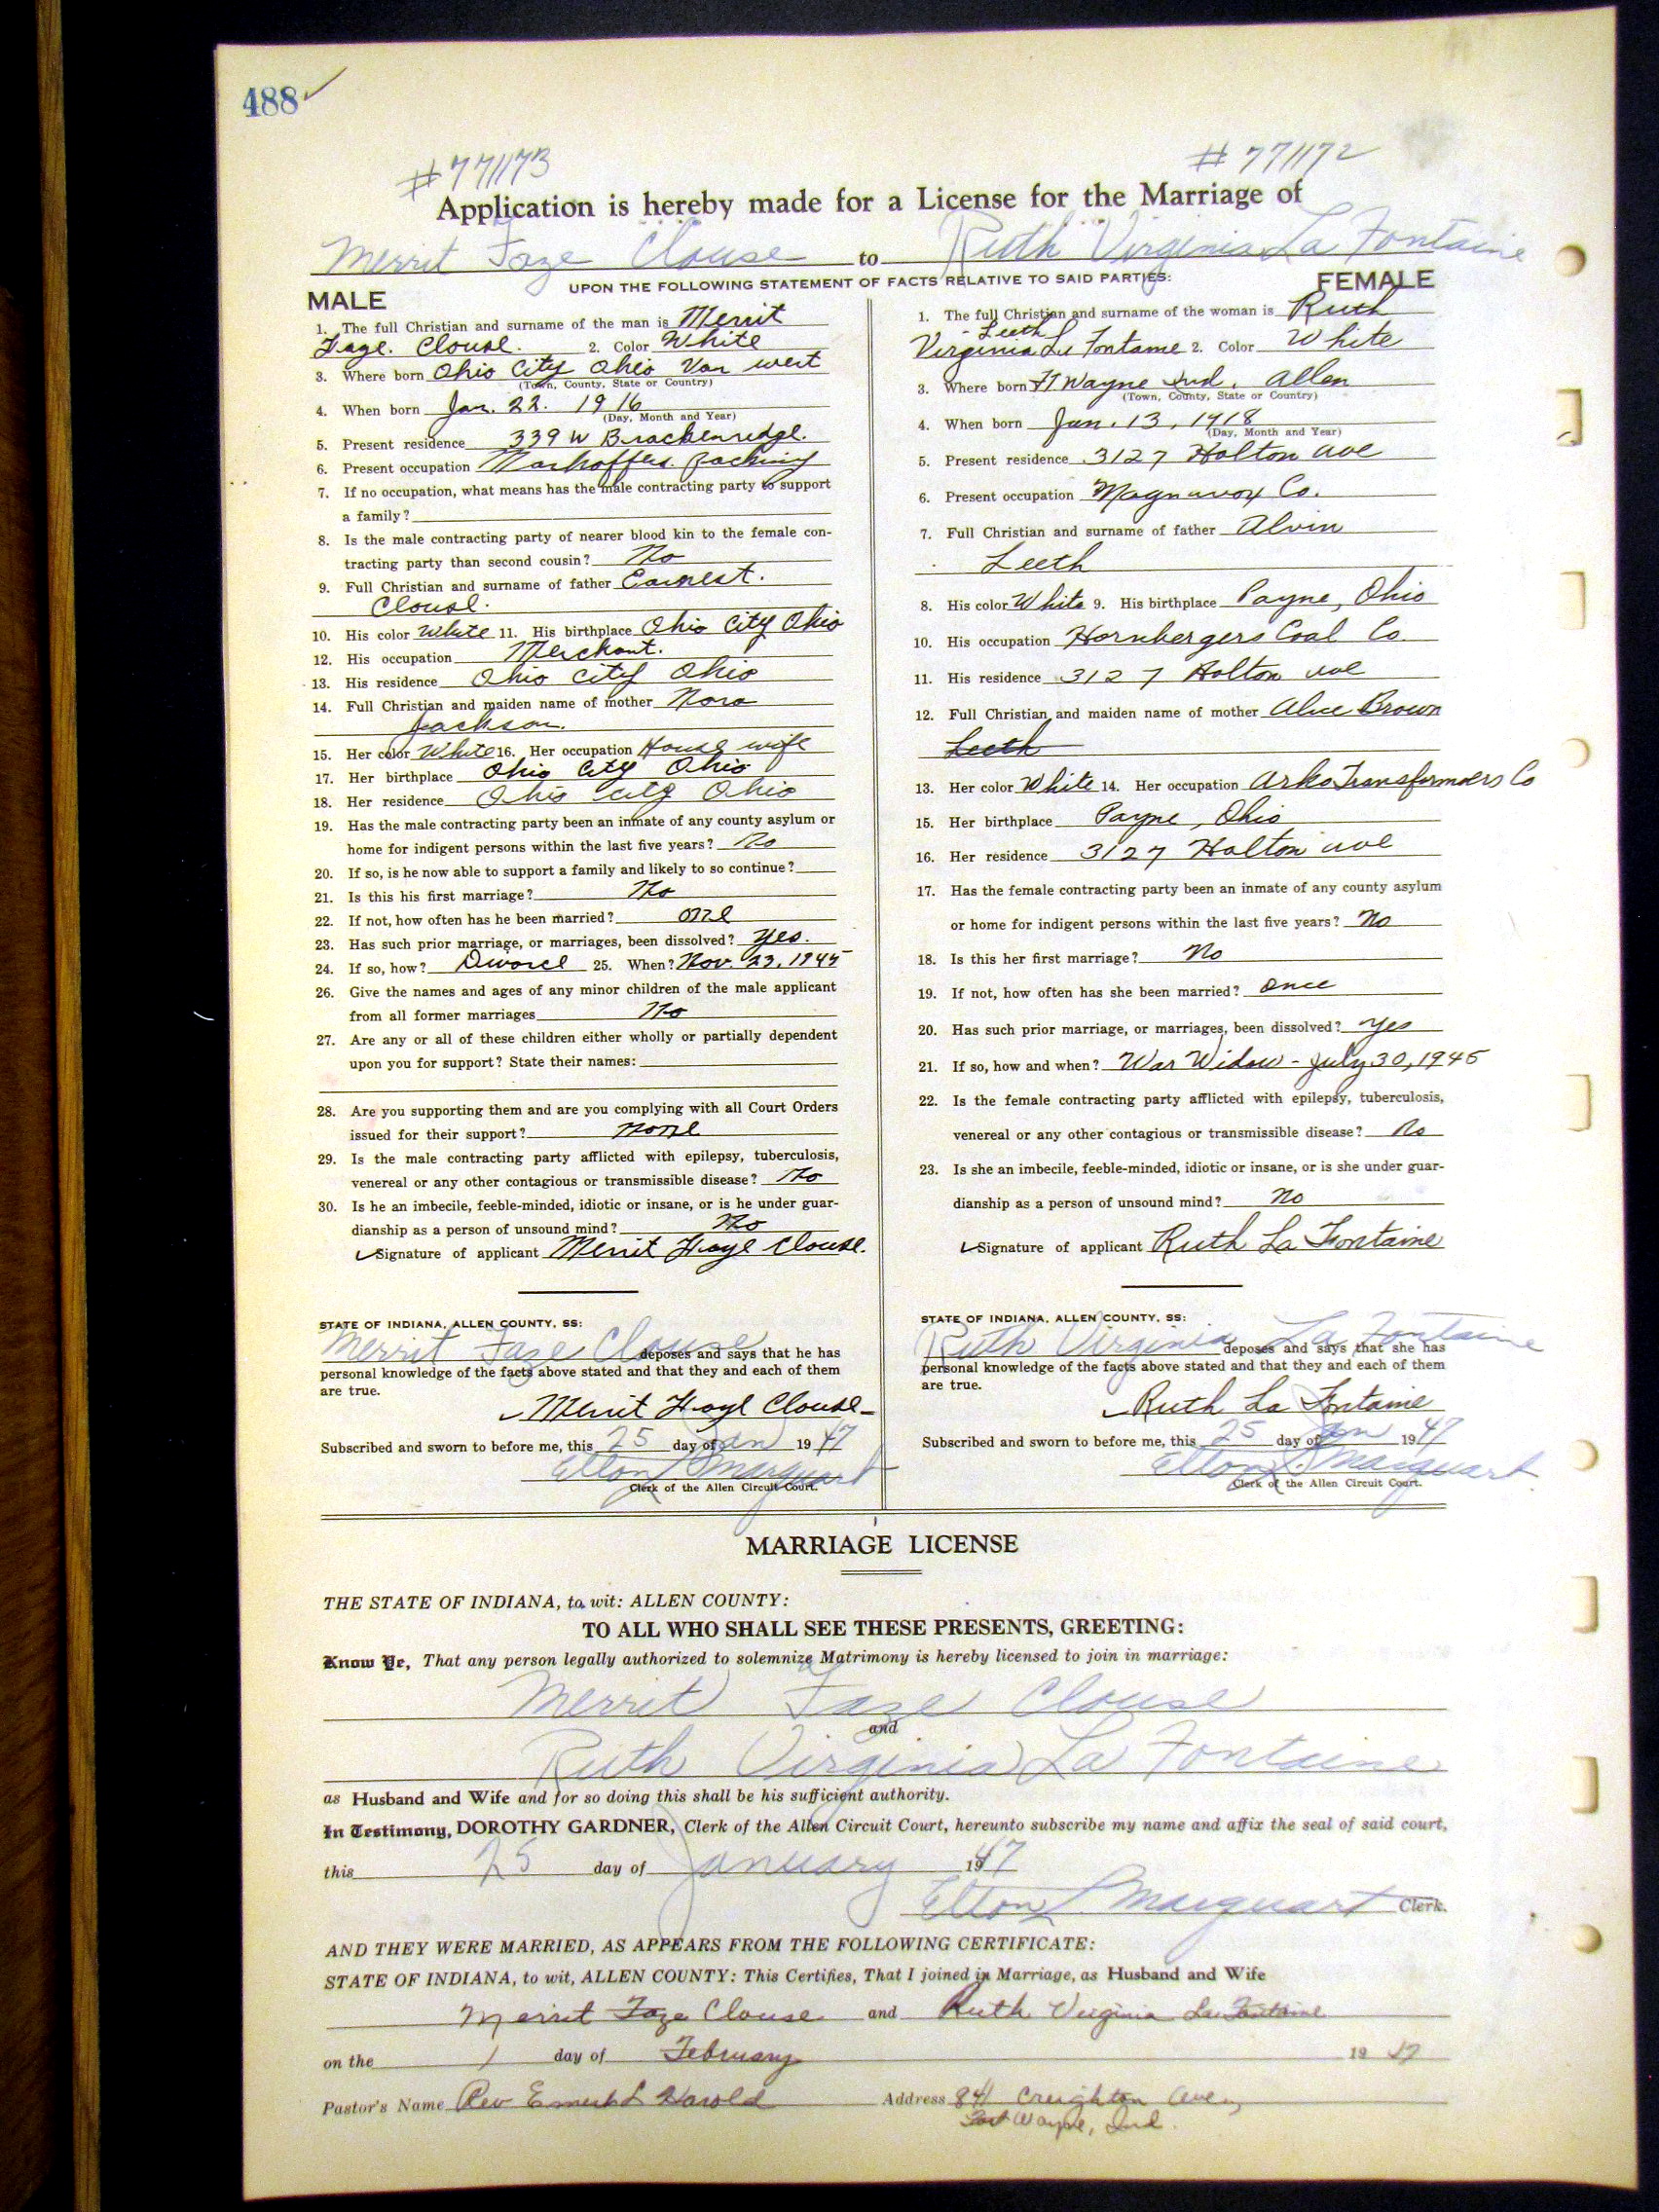 488
#771173 #771172
Application is hereby made for a License for the Marriage of
Merrit Faze Clouse to Ruth Virginia La Fontaine
UPON THE FOLLOWING STATEMENT OF FACTS RELATIVE TO SAID PARTIES:
MALE
1. The full Christian and surname of the man is Merrit
Faye. Clouse. 2. Color White
3. Where born Ohio City Ohio Van wert
(Town, County, State or Country)
4. When born Jan. 22. 1916
(Day, Month and Year)
5. Present residence 339 W Brackenredge.
6. Present occupation packing
7. If no occupation, what means has the male contracting party to support
a family?
8. Is the male contracting party of nearer blood kin to the female con-
tracting party than second cousin? No
9. Full Christian and surname of father Earnest.
Clouse.
10. His color White 11. His birthplace Ohio City Ohio
12. His occupation Merchant.
13. His residence Ohio City Ohio
14. Full Christian and maiden name of mother Nora
Jackson.
15. Her color White 16. Her occupation House wife
17. Her birthplace Ohio City Ohio
18. Her residence Ohio City Ohio
19. Has the male contracting party been an inmate of any county asylum or
home for indigent persons within the last five years? No
20. If so, is he now able to support a family and likely to so continue?
21. Is this his first marriage? No
22. If not, how often has he been married? one
23. Has such prior marriage, or marriages, been dissolved? Yes.
24. If so, how? Divorce 25. When? Nov. 23, 1945
26. Give the names and ages of any minor children of the male applicant
from all former marriages No
27. Are any or all of these children either wholly or partially dependent
upon you for support? State their names:
28. Are you supporting them and are you complying with all Court Orders
issued for their support? none
29. Is the male contracting party afflicted with epilepsy, tuberculosis,
venereal or any other contagious or transmissible disease? No
30. Is he an imbecile, feeble-minded, idiotic or insane, or is he under guar-
dianship as a person of unsound mind? No
Signature of applicant Merrit Faye Clouse.
STATE OF INDIANA, ALLEN COUNTY, SS:
Merrit Faze Clouse deposes and says that he has
personal knowledge of the facts above stated and that they and each of them
are true.
Merrit Faye Clouse
Subscribed and sworn to before me, this 25 day of Jan 1947
Elton L. Marquart
Clerk of the Allen Circuit Court.
FEMALE
1. The full Christian and surname of the woman is Ruth
Leeth
Virginia La Fontaine 2. Color White
3. Where born Ft Wayne Ind. Allen
(Town, County, State or Country)
4. When born Jan. 13, 1918
(Day, Month and Year)
5. Present residence 3127 Holton ave
6. Present occupation Magnavox Co.
7. Full Christian and surname of father Alvin
Leeth
8. His color White 9. His birthplace Payne, Ohio
10. His occupation Hornbergers Coal Co.
11. His residence 3127 Holton ave
12. Full Christian and maiden name of mother Alice Brown
Leeth
13. Her color White 14. Her occupation Arko Transformers Co
15. Her birthplace Payne, Ohio
16. Her residence 3127 Holton ave
17. Has the female contracting party been an inmate of any county asylum
or home for indigent persons within the last five years? No
18. Is this her first marriage? No
19. If not, how often has she been married? Once
20. Has such prior marriage, or marriages, been dissolved? Yes
21. If so, how and when? War Widow - July 30, 1945
22. Is the female contracting party afflicted with epilepsy, tuberculosis,
venereal or any other contagious or transmissible disease? No
23. Is she an imbecile, feeble-minded, idiotic or insane, or is she under guar-
dianship as a person of unsound mind? No
Signature of applicant Ruth La Fontaine
STATE OF INDIANA, ALLEN COUNTY, SS:
Ruth Virginia La Fontaine deposes and says that she has
personal knowledge of the facts above stated and that they and each of them
are true.
Ruth La Fontaine
Subscribed and sworn to before me, this 25 day of Jan 1947
Elton L. Marquart
Clerk of the Allen Circuit Court.
MARRIAGE LICENSE
THE STATE OF INDIANA, to wit: ALLEN COUNTY:
TO ALL WHO SHALL SEE THESE PRESENTS, GREETING:
Know Ye, That any person legally authorized to solemnize Matrimony is hereby licensed to join in marriage:
Merrit Faze Clouse
and
Ruth Virginia La Fontaine
as Husband and Wife and for so doing this shall be his sufficient authority.
In Testimony, DOROTHY GARDNER, Clerk of the Allen Circuit Court, hereunto subscribe my name and affix the seal of said court,
this 25 day of January 1947
Elton L. Marquart Clerk.
AND THEY WERE MARRIED, AS APPEARS FROM THE FOLLOWING CERTIFICATE:
STATE OF INDIANA, to wit, ALLEN COUNTY: This Certifies, That I joined in Marriage, as Husband and Wife
Merrit Faze Clouse and Ruth Virginia La Fontaine
on the 1 day of February 1947
Pastor's Name Rev Harold Address 841 Creighton Ave,
Fort Wayne, Ind.